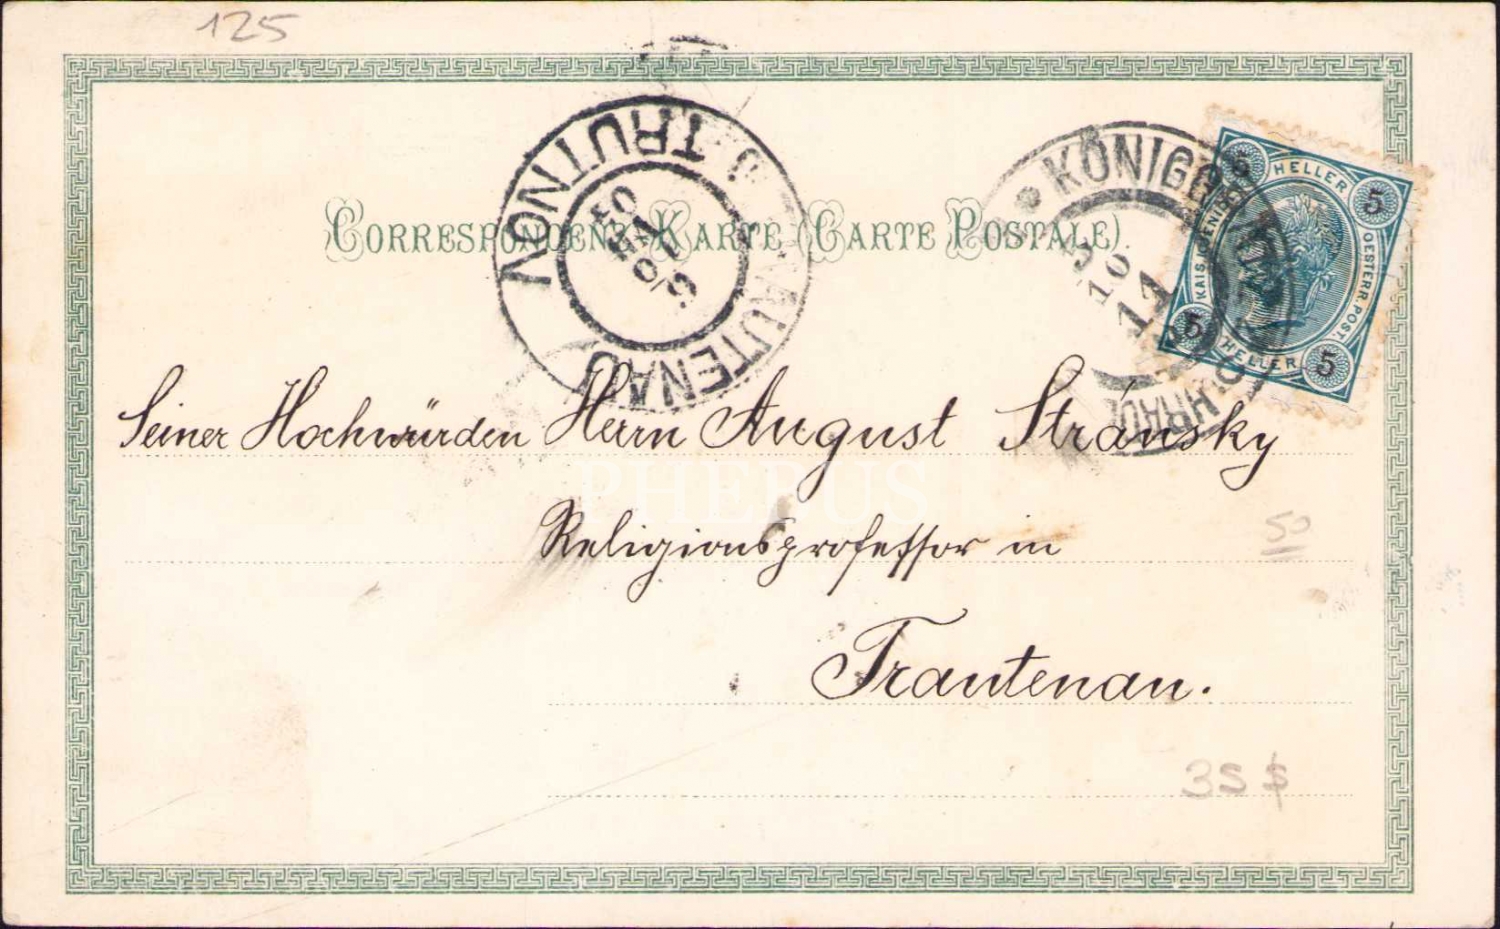 125
Correspondenz-Karte (Carte Postale).
TRAUTENAU
TRUTNOV
KÖNIGGRÄTZ
HRADEC
5 HELLER 5
KAIS. KOENIGL.
OESTERR. POST.
5 HELLER 5
Seiner Hochwürden Herrn August Stránsky
PHEBUS
Religionsprofessor in
50
Trautenau.
35 $